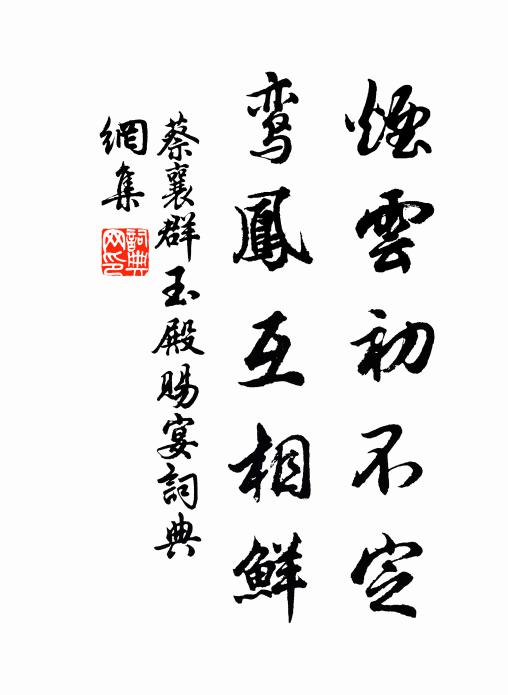 煙雲初不定
鸾鳳互相鮮
蔡襄群玉殿賜宴詞典
網集
詞典網印